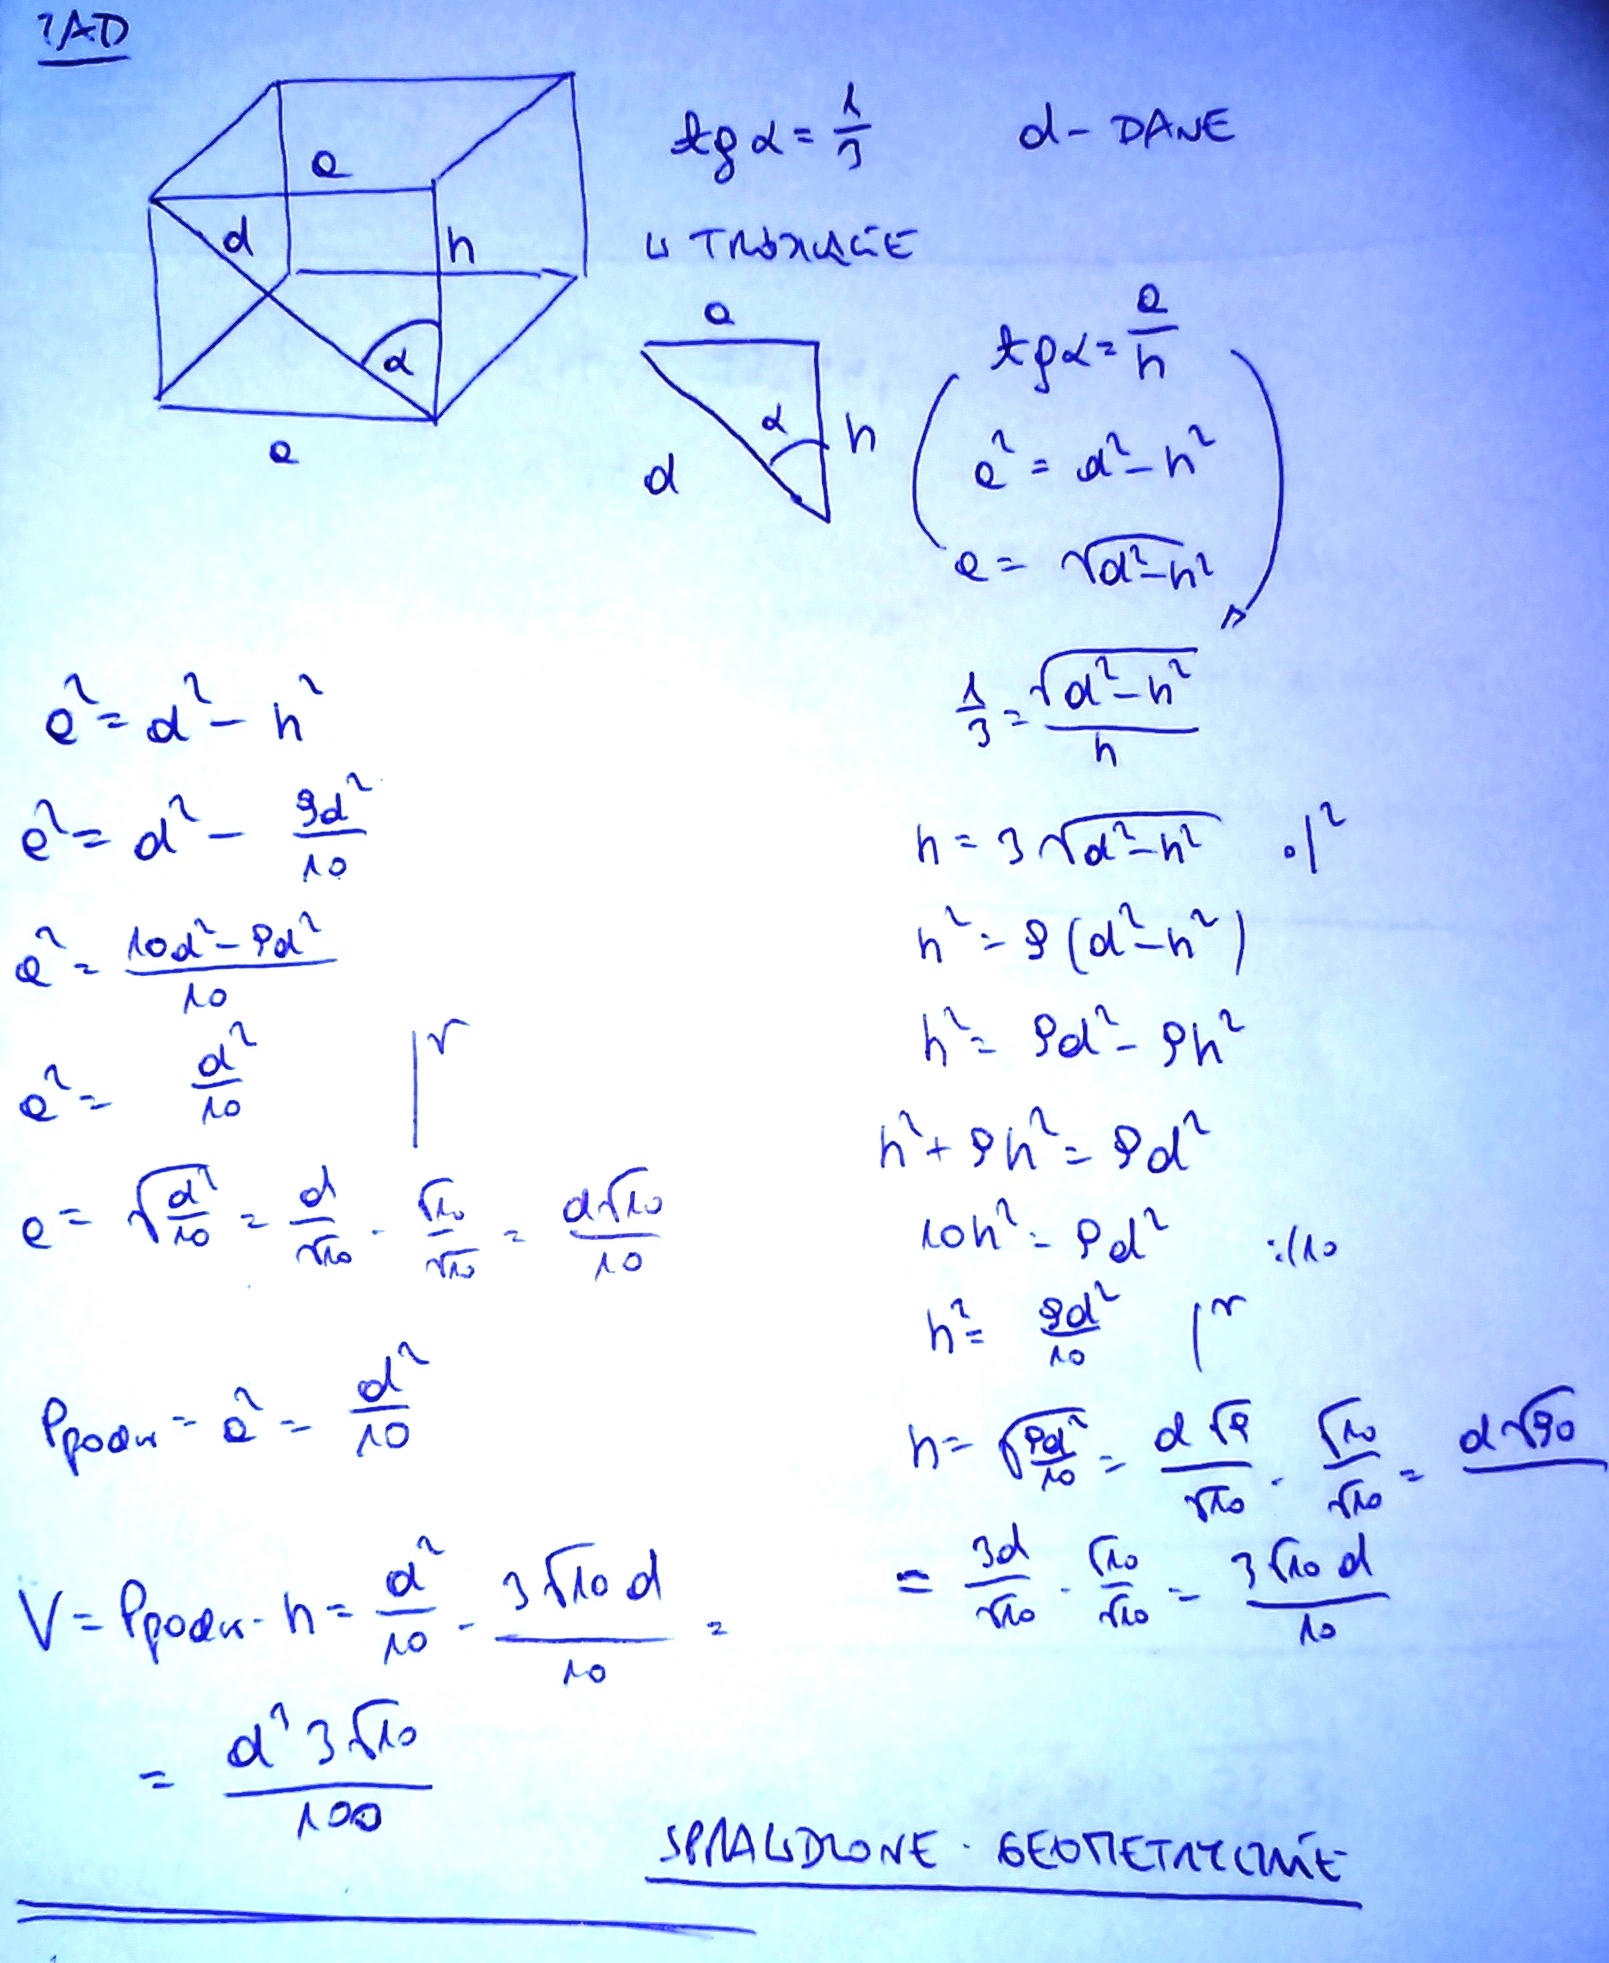 ZAD
tg α = 1/3 d - DANE
a
d
h
α
a
W TRÓJKĄCIE
a
α
h
d
tg α = a/h
a² = d² - h²
a = √(d² - h²)
1/3 = √(d² - h²)/h
h = 3√(d² - h²) ·/²
h² = 9(d² - h²)
h² = 9d² - 9h²
h² + 9h² = 9d²
10h² = 9d² :/10
h² = 9d²/10 |√
h = √(9d²/10) = d√9/√10 · √10/√10 = d√90
= 3d/√10 · √10/√10 = 3√10 d/10
a² = d² - h²
a² = d² - 9d²/10
a² = (10d² - 9d²)/10
a² = d²/10 |√
a = √(d²/10) = d/√10 · √10/√10 = d√10/10
Ppodst = a² = d²/10
V = Ppodst · h = d²/10 · 3√10 d/10 =
= d³3√10/100
SPRAWDZONE · GEOMETRYCZNIE